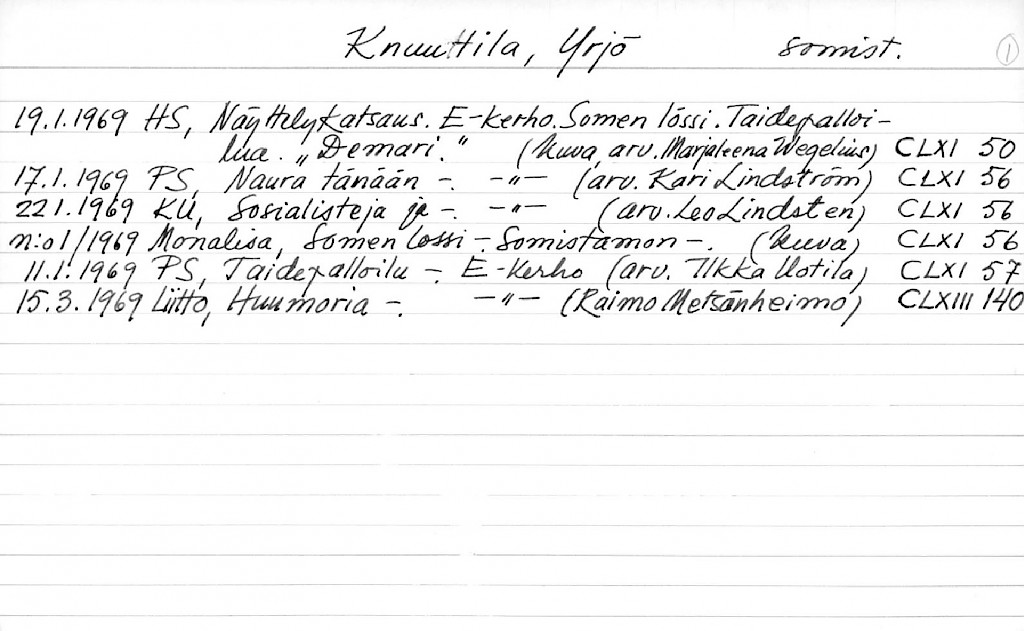 Knuuttila, Yrjö somist. 1
19.1.1969 HS, Näyttelykatsaus. E-kerho. Somen lössi. Taidepalloi-
lua. „Demari." (Kuva, arv. Marjaleena Wegelius) CLXI 50
17.1.1969 PS, Naura tänään -. -"- (arv. Kari Lindström) CLXI 56
22 1.1969 KU, Sosialisteja ja -. -"- (arv. Leo Lindsten) CLXI 56
n:o 1/1969 Monalisa, Somen lössi -. Somistamon -. (Kuva) CLXI 56
11.1.1969 PS, Taidepalloilu -. E-kerho (arv. Ilkka Uotila) CLXI 57
15.3.1969 Liitto, Huumoria -. -"- (Raimo Metsänheimo) CLXIII 140